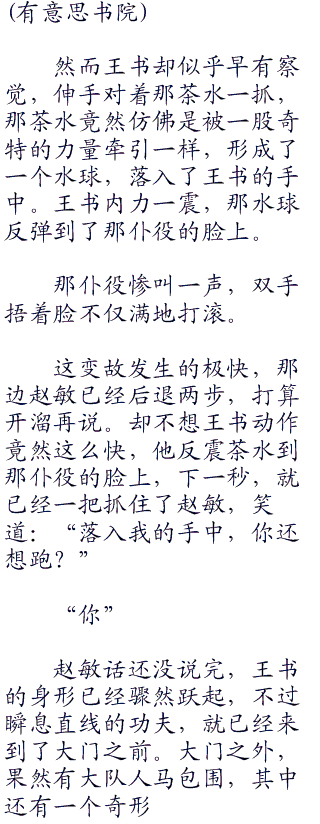 (有意思书院)
然而王书却似乎早有察
觉，伸手对着那茶水一抓，
那茶水竟然仿佛是被一股奇
特的力量牵引一样，形成了
一个水球，落入了王书的手
中。王书内力一震，那水球
反弹到了那仆役的脸上。
那仆役惨叫一声，双手
捂着脸不仅满地打滚。
这变故发生的极快，那
边赵敏已经后退两步，打算
开溜再说。却不想王书动作
竟然这么快，他反震茶水到
那仆役的脸上，下一秒，就
已经一把抓住了赵敏，笑
道：“落入我的手中，你还
想跑？”
“你”
赵敏话还没说完，王书
的身形已经骤然跃起，不过
瞬息直线的功夫，就已经来
到了大门之前。大门之外，
果然有大队人马包围，其中
还有一个奇形